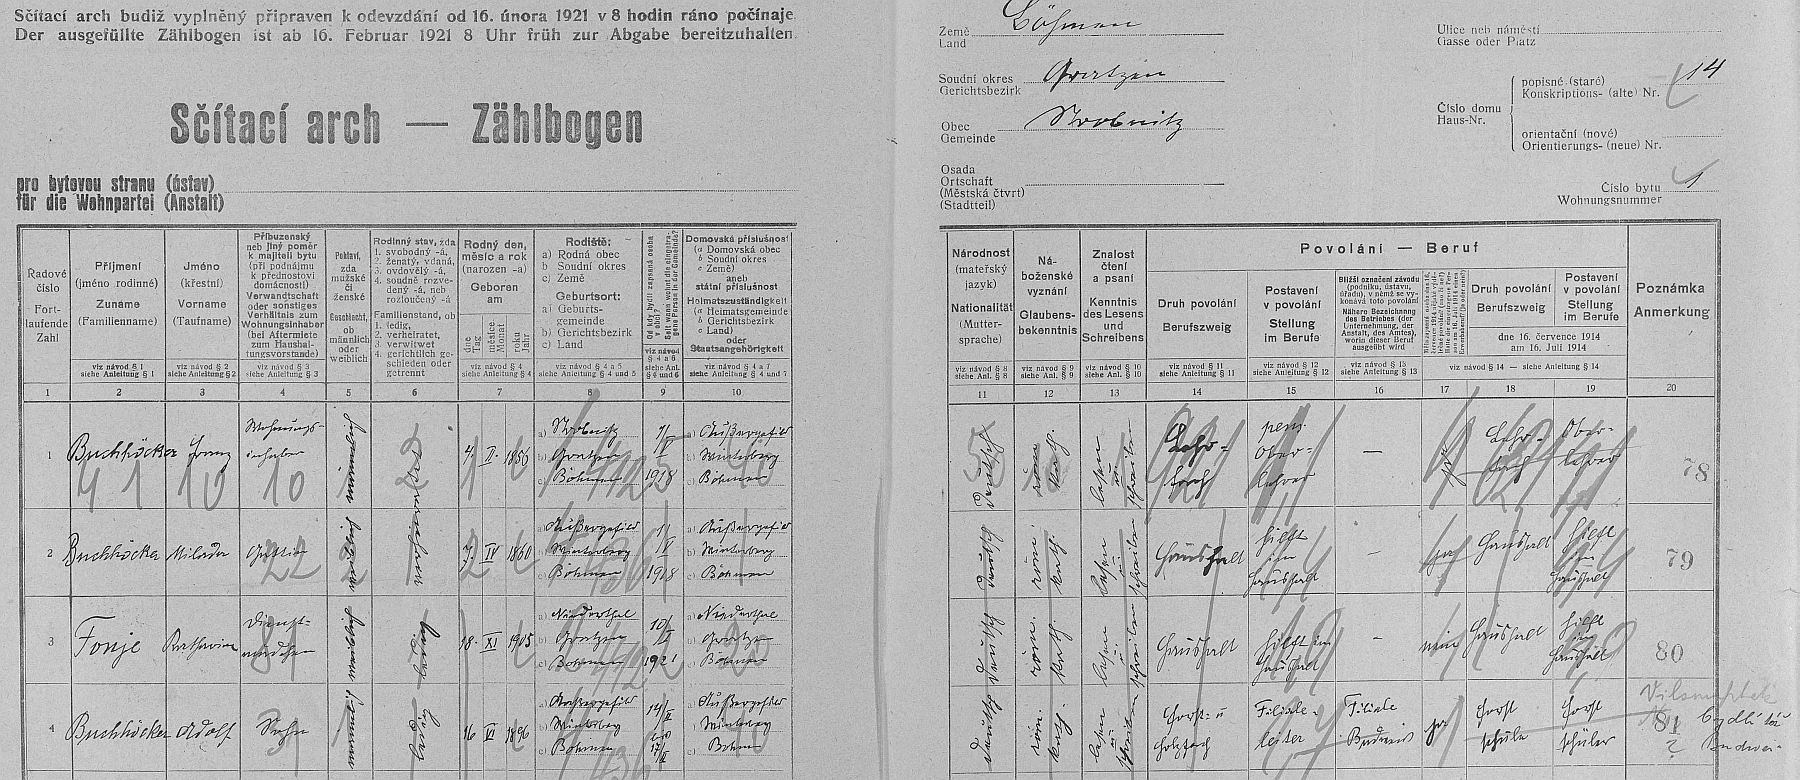 Sčítací arch budiž vyplněný připraven k odevzdání od 16. února 1921 v 8 hodin ráno počínaje.
Der ausgefüllte Zählbogen ist ab 16. Februar 1921 8 Uhr früh zur Abgabe bereitzuhalten.
Sčítací arch — Zählbogen
pro bytovou stranu (ústav)
für die Wohnpartei (Anstalt)
Země
Land
Böhmen
Soudní okres
Gerichtsbezirk
Gratzen
Obec
Gemeinde
Strobnitz
Osada
Ortschaft
(Městská čtvrť)
(Stadtteil)
Ulice neb náměstí
Gasse oder Platz
Číslo domu
Haus-Nr.
popisné (staré)
Konskriptions- (alte) Nr.
14
orientační (nové)
Orientierungs- (neue) Nr.
Číslo bytu
Wohnungsnummer
1
Řadové
číslo
Fort-
laufende
Zahl
Příjmení
(jméno rodinné)
Zuname
(Familienname)
viz návod § 1
siehe Anleitung § 1
Jméno
(křestní)
Vorname
(Taufname)
viz návod § 2
siehe Anleitung § 2
Příbuzenský
neb jiný poměr
k majiteli bytu
(při podnájmu
k přednostovi
domácnosti)
Verwandtschaft
oder sonstiges
Verhältnis zum
Wohnungsinhaber
(bei Aftermiete
zum Haushal-
tungsvorstande)
viz návod § 3
siehe Anleitung § 3
Pohlaví,
zda
mužské
či
ženské
Geschlecht,
ob
männlich
oder
weiblich
Rodinný stav, zda
1. svobodný -á,
2. ženatý, vdaná,
3. ovdovělý -á,
4. soudně rozve-
dený -á, neb
rozloučený -á
Familienstand, ob
1. ledig,
2. verheiratet,
3. verwitwet
4. gerichtlich ge-
schieden oder
getrennt
Rodný den,
měsíc a rok
(narozen -a)
Geboren
am
dne
Tag
měsíce
Monat
roku
Jahr
viz návod § 4
siehe Anleitung § 4
Rodiště:
a) Rodná obec
b) Soudní okres
c) Země
Geburtsort:
a) Geburts-
gemeinde
b) Gerichtsbezirk
c) Land
viz návod § 4 a 5
siehe Anleitung § 4 und 5
Od kdy bydlí zapsaná osoba
v obci?
Seit wann wohnt die eingetra-
gene Person in der Gemeinde?
viz návod
§ 4 a 6
siehe Anl.
§ 4 und 6
Domovská příslušnost
(a Domovská obec
b Soudní okres
c Země)
aneb
státní příslušnost
Heimatszuständigkeit
(a Heimatsgemeinde
b Gerichtsbezirk
c Land)
oder
Staatsangehörigkeit
viz návod § 4 a 7
siehe Anleitung § 4 und 7
Národnost
(mateřský
jazyk)
Nationalität
(Mutter-
sprache)
viz návod § 8
siehe Anl. § 8
Ná-
boženské
vyznání
Glaubens-
bekenntnis
viz návod § 9
siehe Anl. § 9
Znalost
čtení
a psaní
Kenntnis
des Lesens
und
Schreibens
viz návod § 10
siehe Anl. § 10
Povolání — Beruf
Druh povolání
Berufszweig
viz návod § 11
siehe Anleitung § 11
Postavení
v povolání
Stellung
im Berufe
viz návod § 12
siehe Anleitung § 12
Bližší označení závodu
(podniku, ústavu,
úřadu), v němž se vy-
konává toto povolání
Nähere Bezeichnung
des Betriebes (der
Unternehmung, der
Anstalt, des Amtes),
worin dieser Beruf
ausgeübt wird
viz návod § 13
siehe Anleitung § 13
Druh povolání
Berufszweig
Postavení
v povolání
Stellung
im Berufe
dne 16. července 1914
am 16. Juli 1914
viz návod § 14 — siehe Anleitung § 14
Poznámka
Anmerkung
1 2 3 4 5 6 7 8 9 10 11 12 13 14 15 16 17 18 19 20
1 Buchhöcker Franz Wohnungs-
inhaber
männlich verheiratet 4 II. 1856
a) Strobnitz
b) Gratzen
c) Böhmen
1/V 1918
a) Außergefild
b) Winterberg
c) Böhmen
deutsch röm. kath. lesen u schreiben
Lehr-
fach
pens.
Ober-
Lehrer
—
ja
Lehr-
fach
Ober-
lehrer
78
2 Buchhöcker Milada Gattin weiblich verheiratet 7 IV 1860
a) Außergefild
b) Winterberg
c) Böhmen
1/V 1918
a) Außergefild
b) Winterberg
c) Böhmen
deutsch röm. kath. lesen u schreiben
Haushalt
Hilft
im
Haushalt
—
ja
Haushalt
Hilft
im
Haushalt
79
3 Fonje Katharina Dienst-
mädchen
weiblich ledig 18. XI 1905
a) Niederthal
b) Gratzen
c) Böhmen
1921
a) Niederthal
b) Gratzen
c) Böhmen
deutsch röm. kath. lesen u schreiben
Haushalt
Hilft im
Haushalt
—
nein
Haushalt
Hilft
im
Haushalt
80
4 Buchhöcker Adolf Sohn männlich ledig 16 VI 1896
a) Außergefild
b) Winterberg
c) Böhmen
14/II
17/II
a) Außergefild
b) Winterberg
c) Böhmen
deutsch röm. kath. lesen u schreiben
Forst- u
Holzfach
Filiale-
leiter
Filiale
Budweis
ja
Forst
schule
Forst
schüler
81
?
bydliště
Budwei-